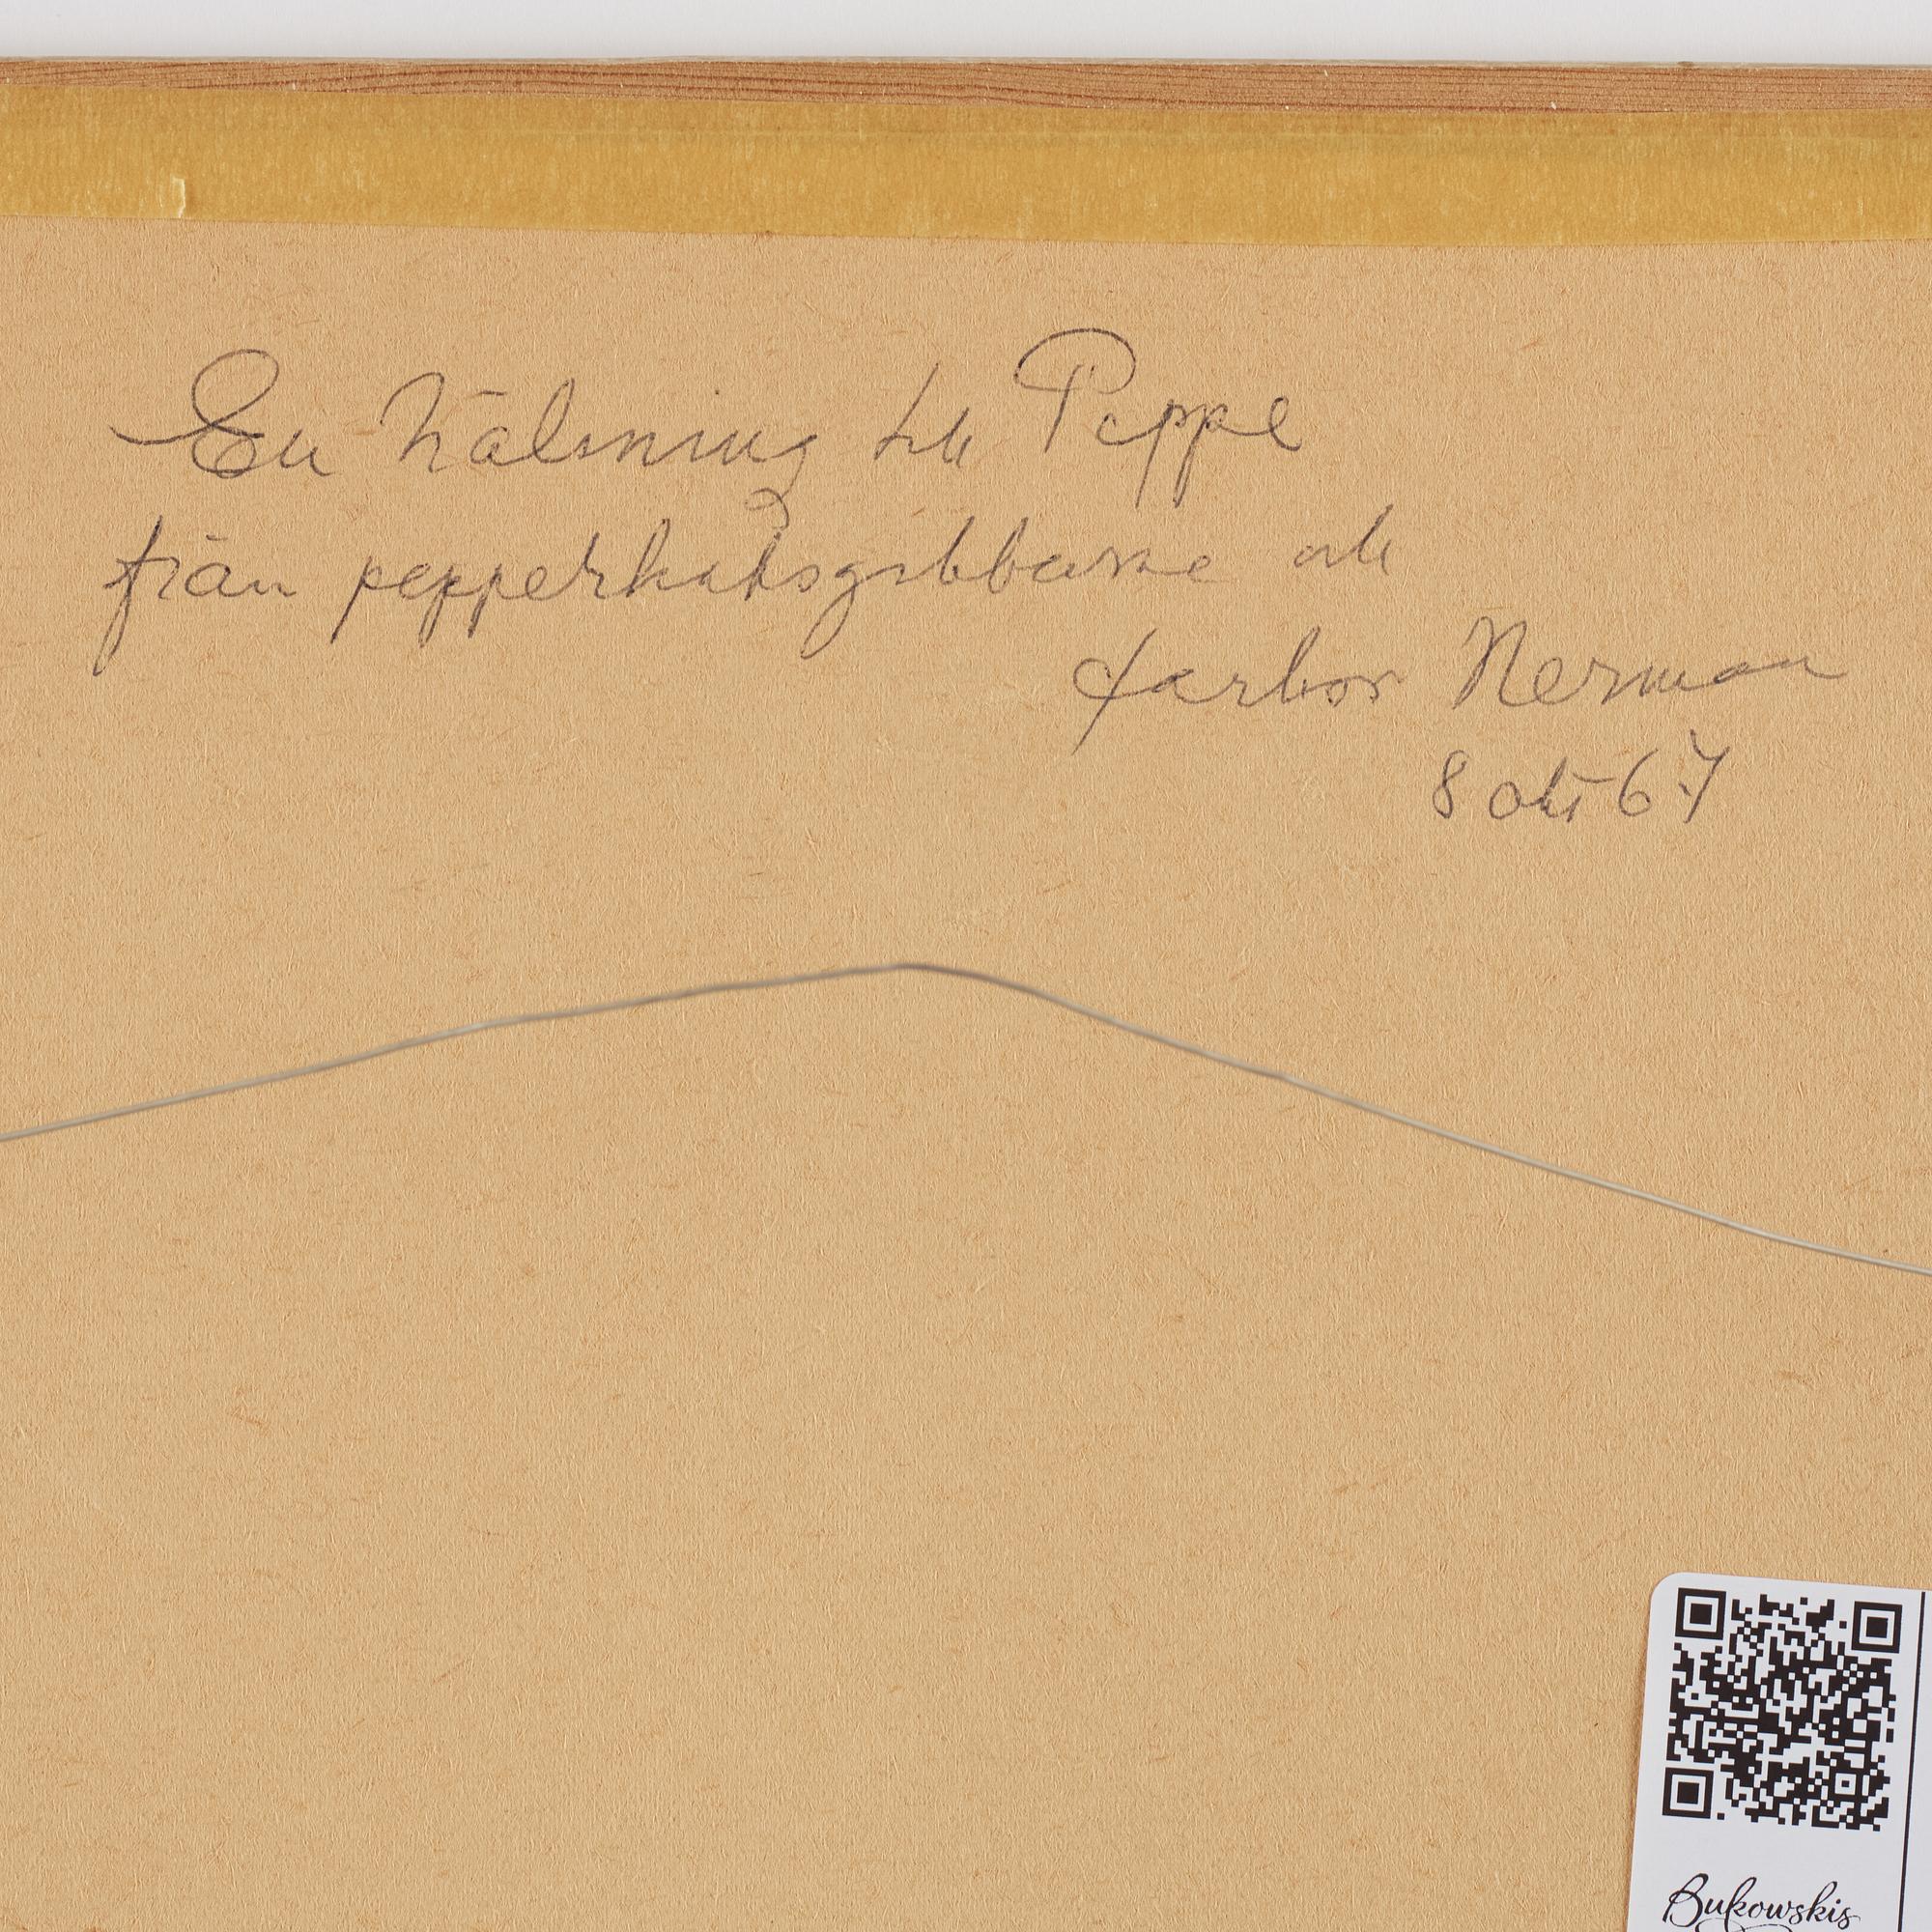 En hälsning till Peppe
från pepperkaksgubbarne och
farbror Nerman
8 okt 67
Bukowskis